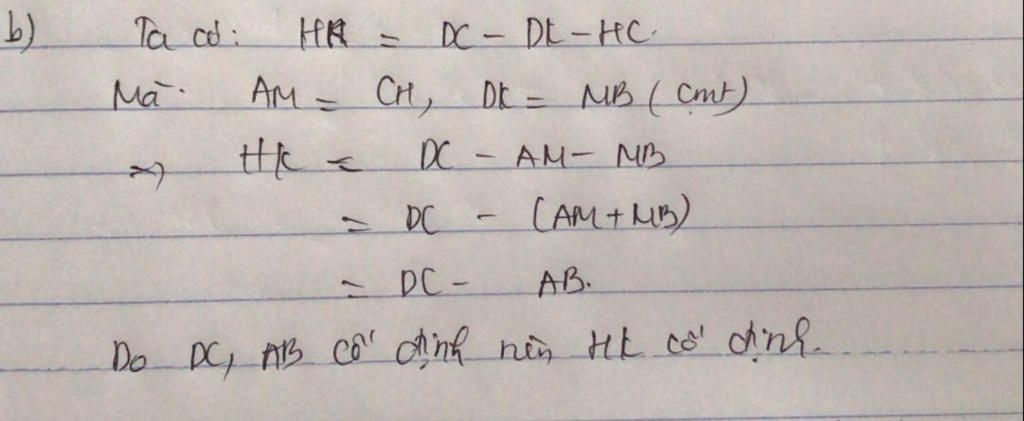 b) Ta có: HK = DC - DK - HC.
Mà: AM = CH, DK = MB (cmt)
=> HK = DC - AM - MB
= DC - (AM + MB)
= DC - AB.
Do DC, AB cố định nên HK cố định.